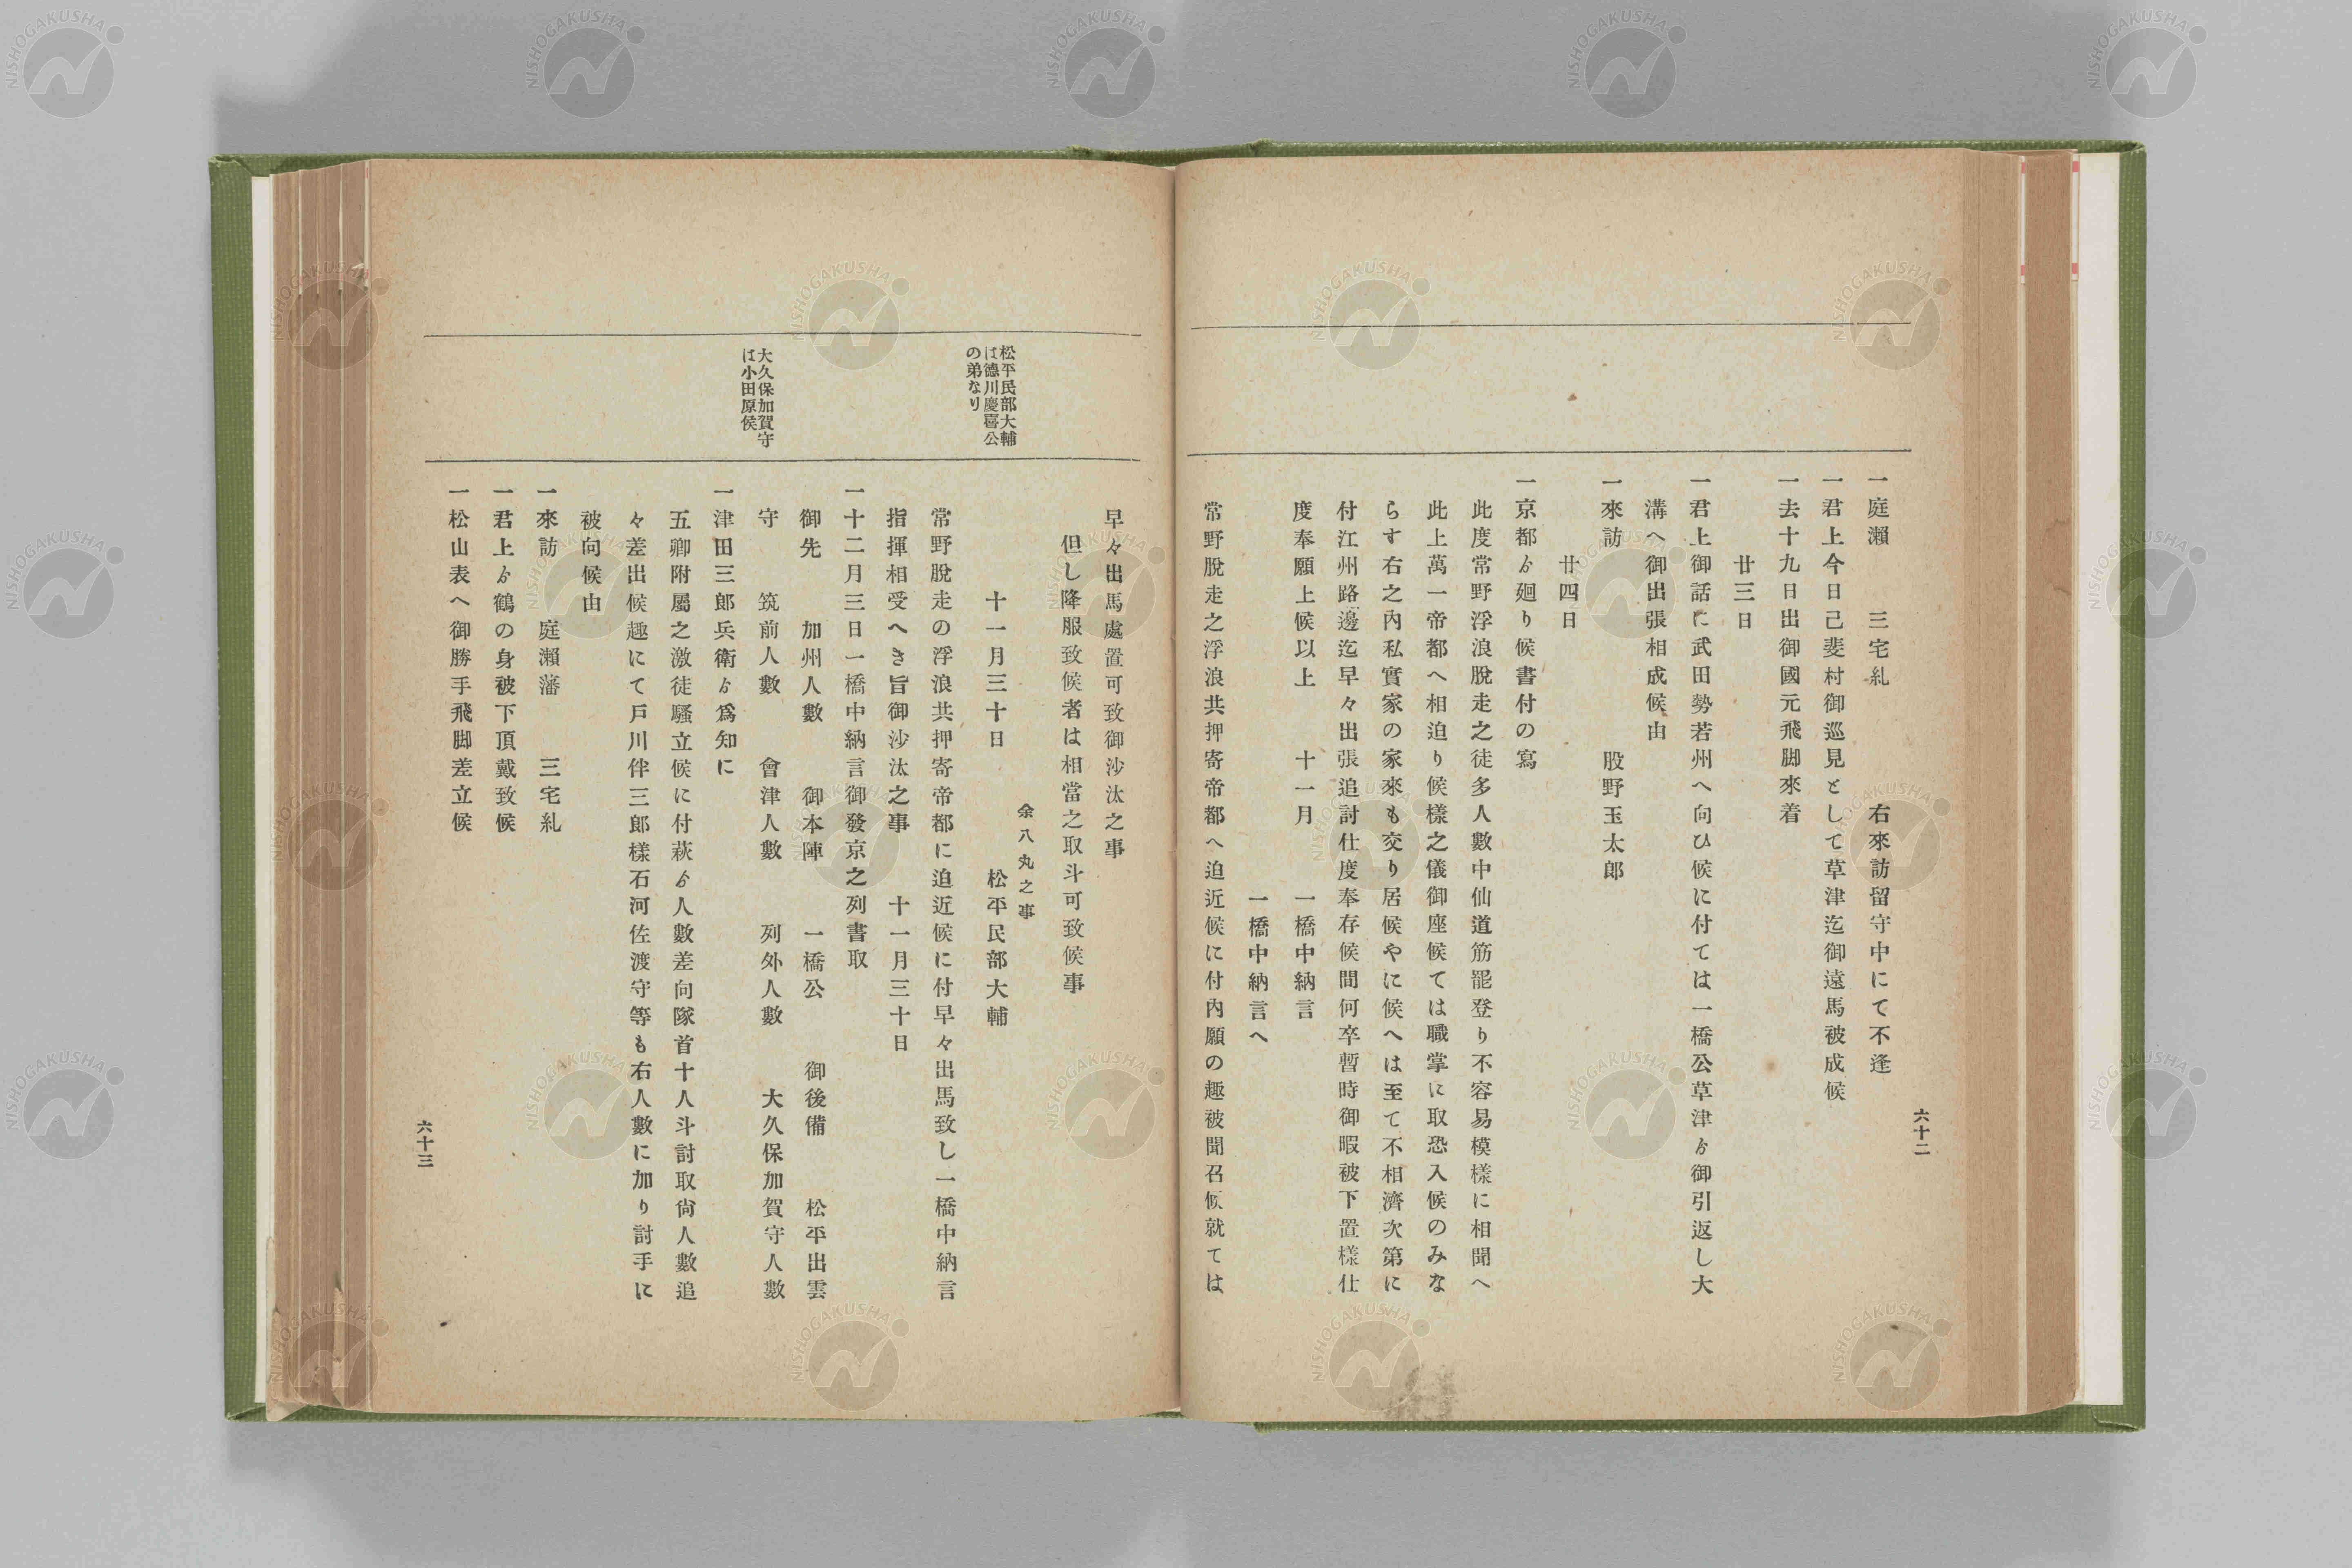 一庭瀨　三宅糺　右來訪留守中にて不逢
一君上今日己斐村御巡見として草津迄御遠馬被成候
一去十九日出御國元飛脚來着
廿三日
一君上御話に武田勢若州へ向ひ候に付ては一橋公草津ゟ御引返し大
溝へ御出張相成候由
一來訪　股野玉太郎
廿四日
一京都ゟ廻り候書付の寫
此度常野浮浪脫走之徒多人數中仙道筋罷登り不容易模樣に相聞へ
此上萬一帝都へ相迫り候樣之儀御座候ては職掌に取恐入候のみな
らす右之內私實家の家來も交り居候やに候へは至て不相濟次第に
付江州路邊迄早々出張追討仕度奉存候間何卒暫時御暇被下置樣仕
度奉願上候以上　十一月　一橋中納言
一橋中納言へ
常野脫走之浮浪共押寄帝都へ迫近候に付內願の趣被聞召候就ては
六十二
松平民部大輔
は德川慶喜公
の弟なり
大久保加賀守
は小田原侯
早々出馬處置可致御沙汰之事
但し降服致候者は相當之取斗可致候事
余八丸之事
十一月三十日　松平民部大輔
常野脫走の浮浪共押寄帝都に迫近候に付早々出馬致し一橋中納言
指揮相受へき旨御沙汰之事　十一月三十日
一十二月三日一橋中納言御發京之列書取
御先　加州人數　御本陣　一橋公　御後備　松平出雲
守　筑前人數　會津人數　列外人數　大久保加賀守人數
一津田三郎兵衛ゟ爲知に
五卿附屬之激徒騷立候に付萩ゟ人數差向隊首十人斗討取尙人數追
々差出候趣にて戶川伴三郎樣石河佐渡守等も右人數に加り討手に
被向候由
一來訪　庭瀨藩　三宅糺
一君上ゟ鶴の身被下頂戴致候
一松山表へ御勝手飛脚差立候
六十三
NISHOGAKUSHA